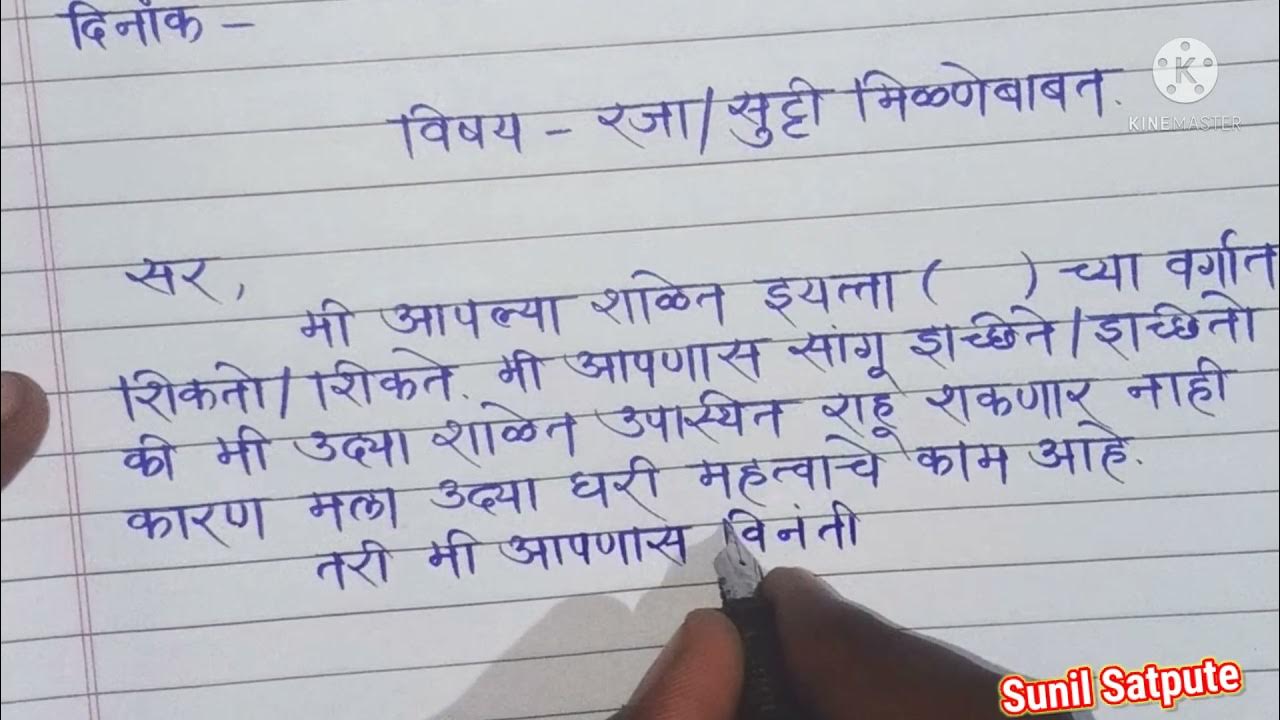 दिनांक -
विषय - रजा/सुट्टी मिळणेबाबत.
KINEMASTER
सर,
मी आपल्या शाळेत इयत्ता (    ) च्या वर्गात
शिकतो/शिकते. मी आपणास सांगू इच्छिते/इच्छितो
की मी उद्या शाळेत उपस्थित राहू शकणार नाही
कारण मला उद्या घरी महत्वाचे काम आहे.
तरी मी आपणास विनंती
Sunil Satpute